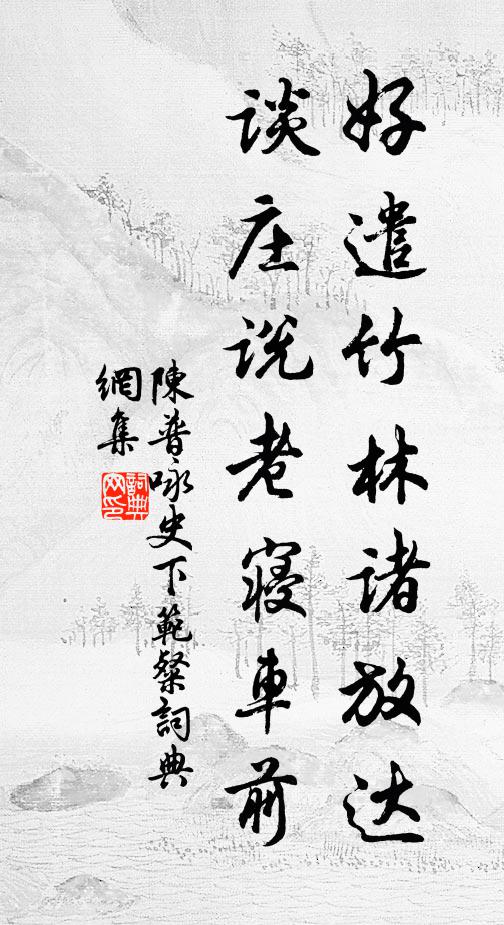 好遣竹林诸放达
谈庄说老寝车前
陳普咏史下範粲詞典
網集
詞典
网印